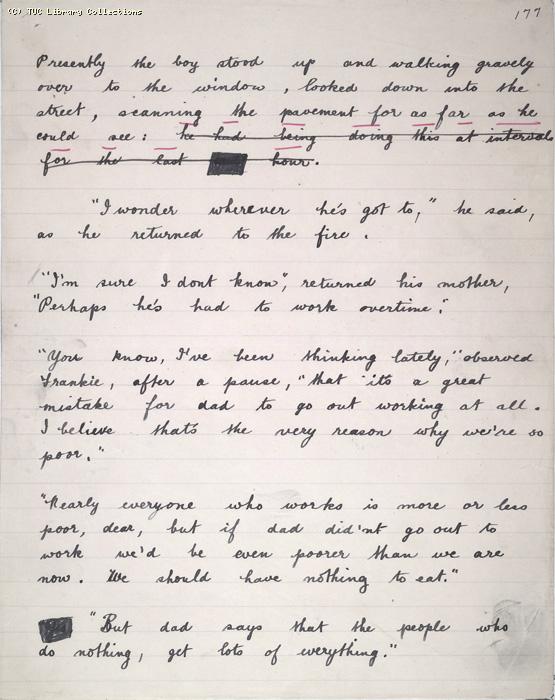 (C) TUC Library Collections
177
Presently the boy stood up and walking gravely
over to the window, looked down into the
street, scanning the pavement for as far as he
could see: he had being doing this at intervals
for the last hour.
"I wonder wherever he's got to," he said,
as he returned to the fire.
"I'm sure I dont know", returned his mother,
"Perhaps he's had to work overtime."
"You know, I've been thinking lately," observed
Frankie, after a pause, "that it's a great
mistake for dad to go out working at all.
I believe that's the very reason why we're so
poor."
"Nearly everyone who works is more or less
poor, dear, but if dad did'nt go out to
work we'd be even poorer than we are
now. We should have nothing to eat."
"But dad says that the people who
do nothing, get lots of everything."